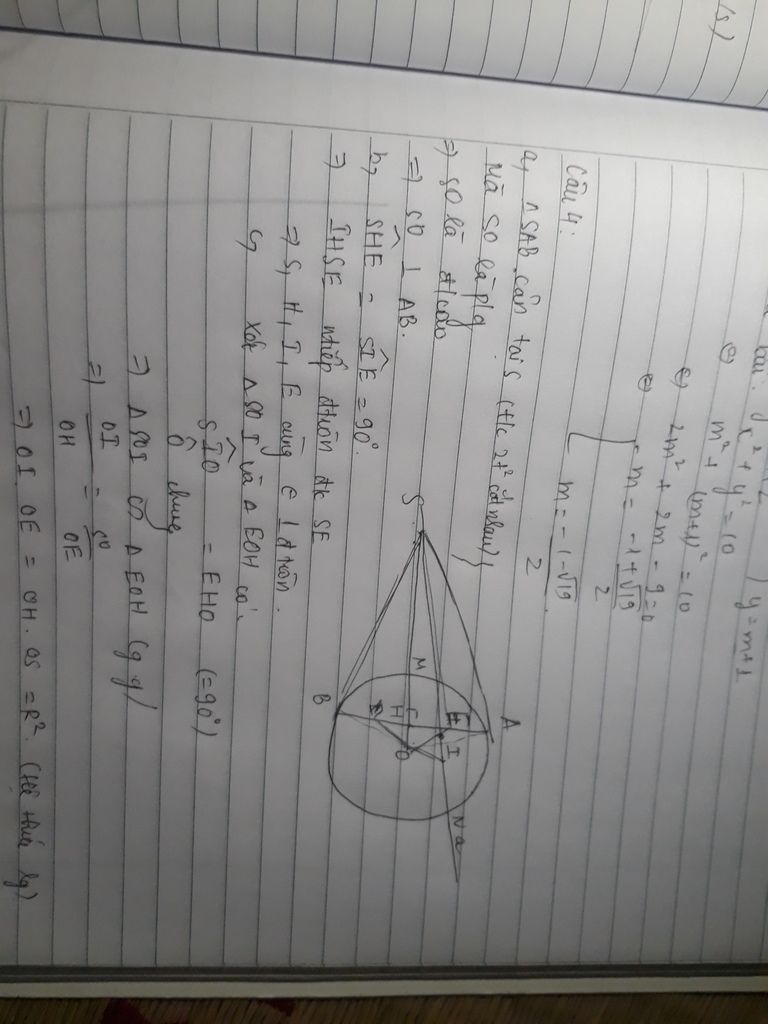 x² + y² = 10
y = m+1
⇔ m² + (m+1)² = 10
⇔ 2m² + 2m - 9 = 0
⇔ [ m = -1+√19 / 2
m = -1-√19 / 2
Câu 4:
a, △SAB cân tại S (t/c 2t² cắt nhau)
Mà SO là p/g
⇒ SO là đ/cao
⇒ SO ⊥ AB.
b, SHE = SIE = 90°.
⇒ IHSE ntiếp đtròn đk SE
⇒ S, H, I, E cùng ∈ 1 đtròn.
c, xét △SOI và △EOH có.
SIO = EHO (=90°)
Ô chung
⇒ △SOI ∽ △EOH (g.g)
⇒ OI / OH = SO / OE
⇒ OI. OE = OH. OS = R². (hệ thức lg)
S
M
A
B
H
E
I
O
N
a